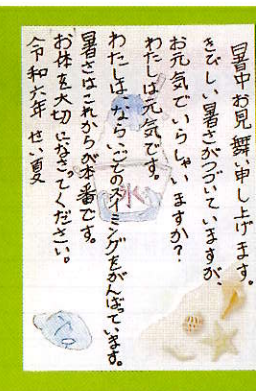 暑中お見舞い申し上げます。
きびしい暑さがつづいていますが、
お元気でいらしゃいますか？
わたしは元気です。
わたしは、ならいごとのスイミングをがんばっています。
暑さはこれからが本番です。
お体を大切になさってください。
令和六年 せい夏
氷